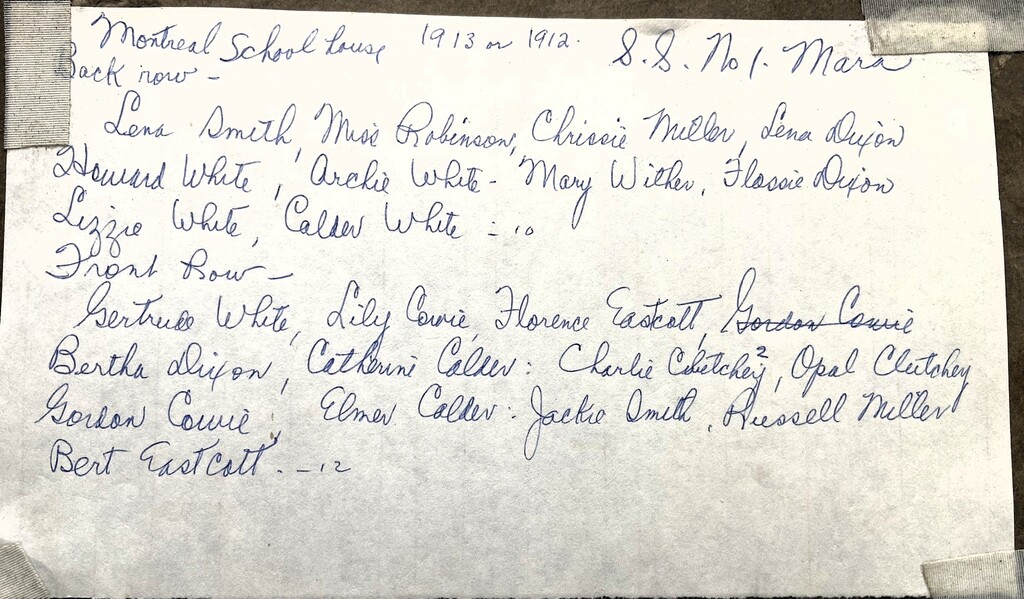 Montreal School house 1913 or 1912. S.S. No 1. Mara
Back row -
Lena Smith, Miss Robinson, Chrissie Miller, Lena Dixon
Howard White, Archie White - Mary Wither, Flossie Dixon
Lizzie White, Calder White - 10
Front Row -
Gertrude White, Lily Cowie, Florence Eastcott, ~~Gordon Cowie~~
Bertha Dixon, Catherine Calder: Charlie Clutchey ², Opal Clutchey
Gordon Cowie: Elmer Calder. Jackie Smith, Russell Miller
Bert Eastcott. - 12